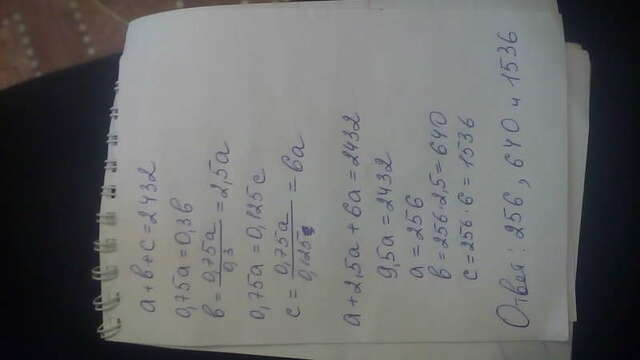 a + в + c = 2432
0,75a = 0,3в
в = 0,75a / 0,3 = 2,5a
0,75a = 0,125c
c = 0,75a / 0,125 = 6a
a + 2,5a + 6a = 2432
9,5a = 2432
a = 256
в = 256 · 2,5 = 640
c = 256 · 6 = 1536
Ответ: 256, 640 и 1536